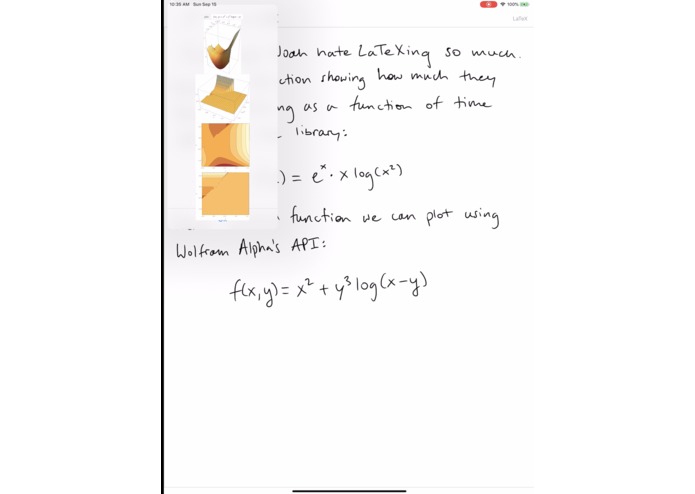 10:35 AM Sun Sep 15
100%
LaTeX
Noah hate LaTeXing so much.
ction showing how much they
ng as a function of time
library:
.) = eˣ · x log(x²)
function we can plot using
Wolfram Alpha's API:
f(x,y) = x² + y³ log(x-y)